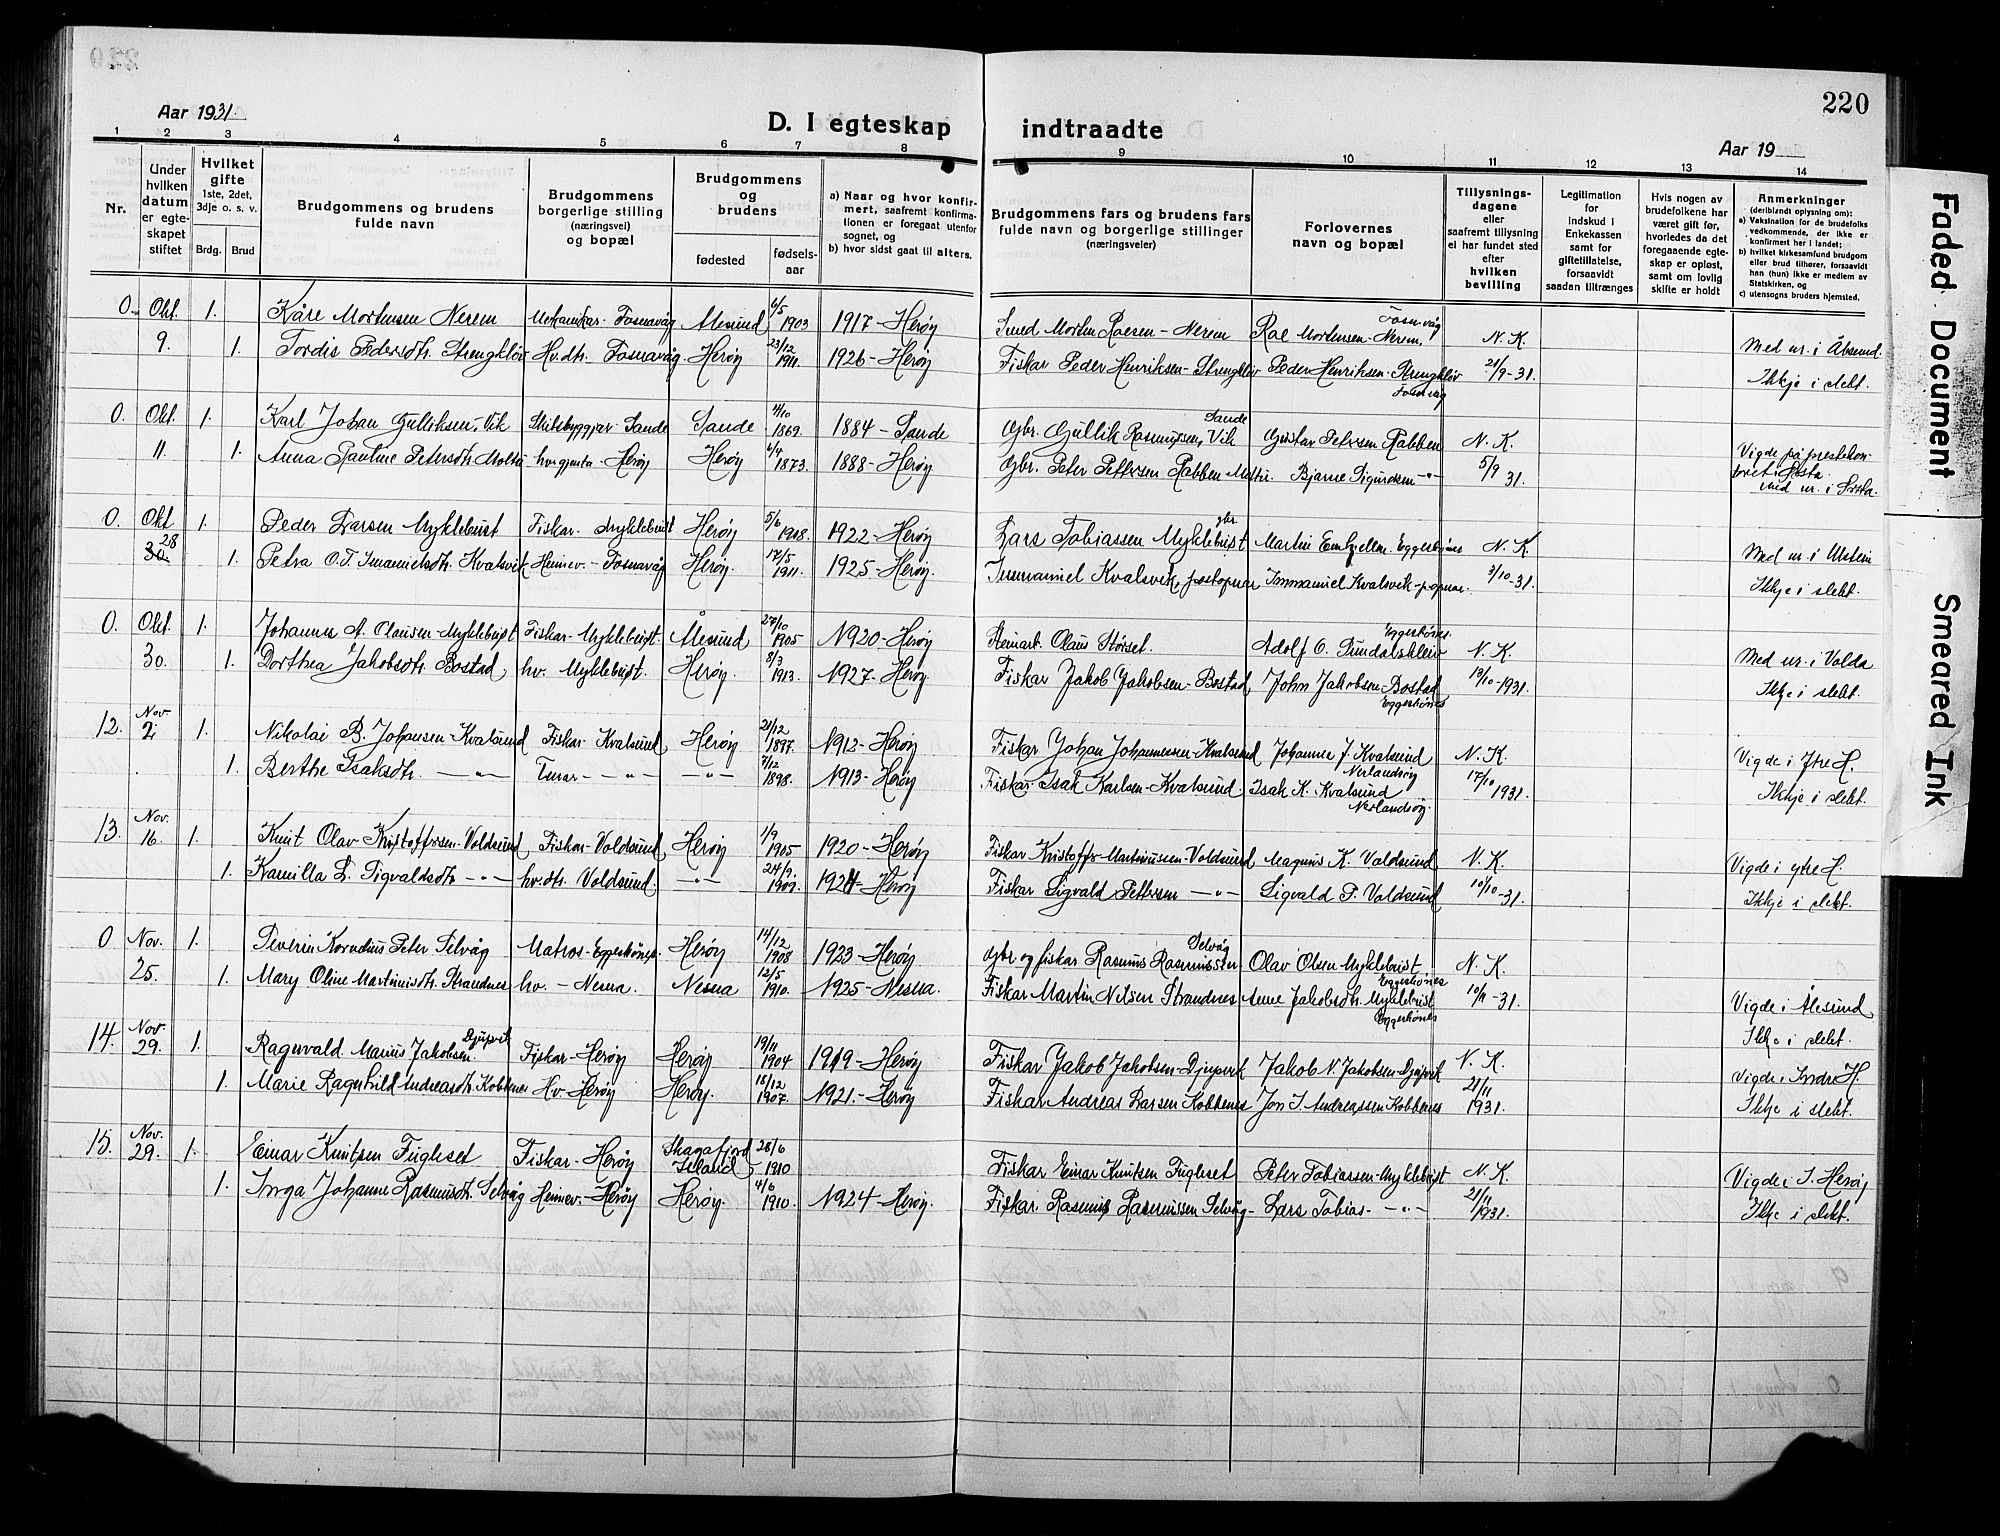 220
Aar 1931.
D. I egteskap indtraadte
Aar 19
1 2 3 4 5 6 7 8 9 10 11 12 13 14
Nr.
Under hvilken datum er egteskapet stiftet
Hvilket gifte
1ste, 2det, 3dje o. s. v.
Brdg. Brud
Brudgommens og brudens fulde navn
Brudgommens borgerlige stilling (næringsvei) og bopæl
Brudgommens og brudens
fødested
fødselsaar
a) Naar og hvor konfirmert, saafremt konfirmationen er foregaat utenfor sognet, og
b) hvor sidst gaat til alters.
Brudgommens fars og brudens fars fulde navn og borgerlige stillinger (næringsveier)
Forlovernes navn og bopæl
Tillysningsdagene eller saafremt tillysning ei har fundet sted efter hvilken bevilling
Legitimation for indskud i Enkekassen samt for giftetillatelse, forsaavidt saadan tiltrænges
Hvis nogen av brudefolkene har været gift før, hvorledes da det foregaaende egteskap er opløst, samt om lovlig skifte er holdt
Anmerkninger
(deriblandt oplysning om):
a) Vaksination for de brudefolks vedkommende, der ikke er konfirmert her i landet;
b) hvilket kirkesamfund brudgom eller brud tilhører, forsaavidt han (hun) ikke er medlem av Statskirken, og
c) utensogns bruders hjemsted.
0. Okt. 1. Kåre Mortensen Nerem Mekanikar - Fosnavåg 6/5 1903 1917 - Herøy Smed Morten Roesen - Nerem Roe Mortensen - Nerem, Fosnavåg N. K.
9. 1. Tordis Pedersdtr. Hv.dtr. Fosnavåg Herøy 23/12 1911. 1926 - Herøy Fiskar Peder Henriksen Peder Henriksen Fosnavåg 21/9-31. Ikkje i slekt.
0. Okt. 1. Karl Johan Gulliksen, Vik Sande Sande 4/10 1869. 1884 - Sande Gbr. Gullik Rasmussen, Vik Sande Gustav Petersen Rabben N. K.
11. 1. Anna Pauline Petersdtr Herøy Herøy 6/4 1873. 1888 - Herøy Gbr. Peter Pettersen Rabben Bjarne Sigurdsen -"- 5/9 31. Vigde på prestekon-
0. Okt 1. Peder Larsen Myklebust Fiskar. Myklebust Herøy 5/6 1908. 1922 - Herøy Lars Tobiassen Myklebust gbr. Martin Eggesbønes N. K.
28 30 1. Petra O.J. Kvalsvik Heimev. - Fosnavåg Herøy. 17/5 1911. 1925 - Herøy. Immanuel Kvalsvik, postopnar Immanuel Kvalsvik - p.opnar. 3/10-31. Ikkje i slekt.
0. Okt. 1. Johannes A. Olausen - Myklebust Fiskar - Myklebust. 27/10 1905 1920 - Herøy Olaus Størset. Adolf O. Eggesbønes. N. K. Med ur. i Volda
30. 1. Dorthea Jakobsdtr. Bostad, hv. Myklebust. Herøy. 8/3 1913. 1927 - Herøy Fiskar Jakob Jakobsen - Bostad John Jakobsen - Bostad Eggesbønes 10/10-1931. Ikkje i slekt.
12. Nov. 2. 1. Nikolai B. Johansen - Kvalsund Fiskar - Kvalsund Herøy 21/12 1897. 1912 - Herøy Fiskar Johan Johannessen - Kvalsund Johannes J. Kvalsund Nerlandsøy N. K. Vigde i Ytre H.
1. Berthe Isaksdtr. -"- -"- -"- 7/12 1898. 1913 - Herøy Fiskar Isak Karlsen - Kvalsund. Isak K. Kvalsund Nerlandsøy. 17/10 1931. Ikkje i slekt.
13. Nov. 16. 1. Knut Olav Kristoffersen - Voldsund Fiskar - Voldsund Herøy 1/9 1905 1920 - Herøy Fiskar Kristoffer Martinussen - Voldsund Magnus K. Voldsund N. K. Vigde i ytre H.
1. Kamilla L. Sigvaldsdtr -"- hv.dtr. Voldsund. -"- 24/9. 1909. 1924 - Herøy Fiskar Sigvald Pettersen -"- Sigvald P. Voldsund 10/10-31. Ikkje i slekt.
0 Nov. 1. Severin Kornelius Peter Selvåg Matros - Eggesbønes. Herøy 14/12 1908 1923 - Herøy Gbr. og fiskar Rasmus Rasmussen Selvåg Olav Olsen Myklebust Eggesbønes N. K.
25. 1. Mary Oline Martinusdtr. Strandnes hv. - Nesna. Nesna 12/5 1910. 1925 - Nesna. Fiskar Martin Nilsen Strandnes Anne Jakobsdtr. Myklebust Eggesbønes 10/11-31. Vigde i Ålesund
Ikkje i slekt.
14. Nov. 29. 1. Ragnvald Marius Jakobsen Djupvik Fiskar - Herøy Herøy 19/11 1904 1919 - Herøy Fiskar Jakob Jakobsen - Djupvik Jakob N. Jakobsen - Djupvik N. K. Vigde i Indre H.
1. Marie Ragnhild Andreasdtr. Kobbenes Hv. - Herøy Herøy. 18/12 1907. 1921. - Herøy Fiskar Andreas Larsen Kobbenes Jon J. Andreassen Kobbenes 21/11 1931. Ikkje i slekt.
15. Nov. 29. 1. Einar Knutsen Fugleset Fiskar - Herøy Skagafjord Island 28/6 1910 Fiskar Einar Knutsen Fugleset Peter Tobiassen - Myklebust N. K. Vigde i I. Herøy
1. Inga Johanne Rasmusdtr. Selvåg Heimev. - Herøy Herøy. 4/6 1910. 1924 - Herøy. Fiskar Rasmus Rasmussen Selvåg - Lars Tobias. -"- 21/11 1931. Ikkje i slekt.
Faded Document Smeared Ink